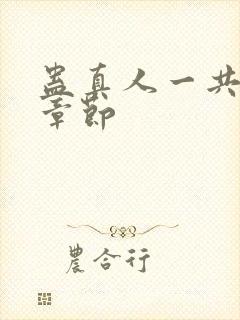 蛊真人一共
章節
農合行